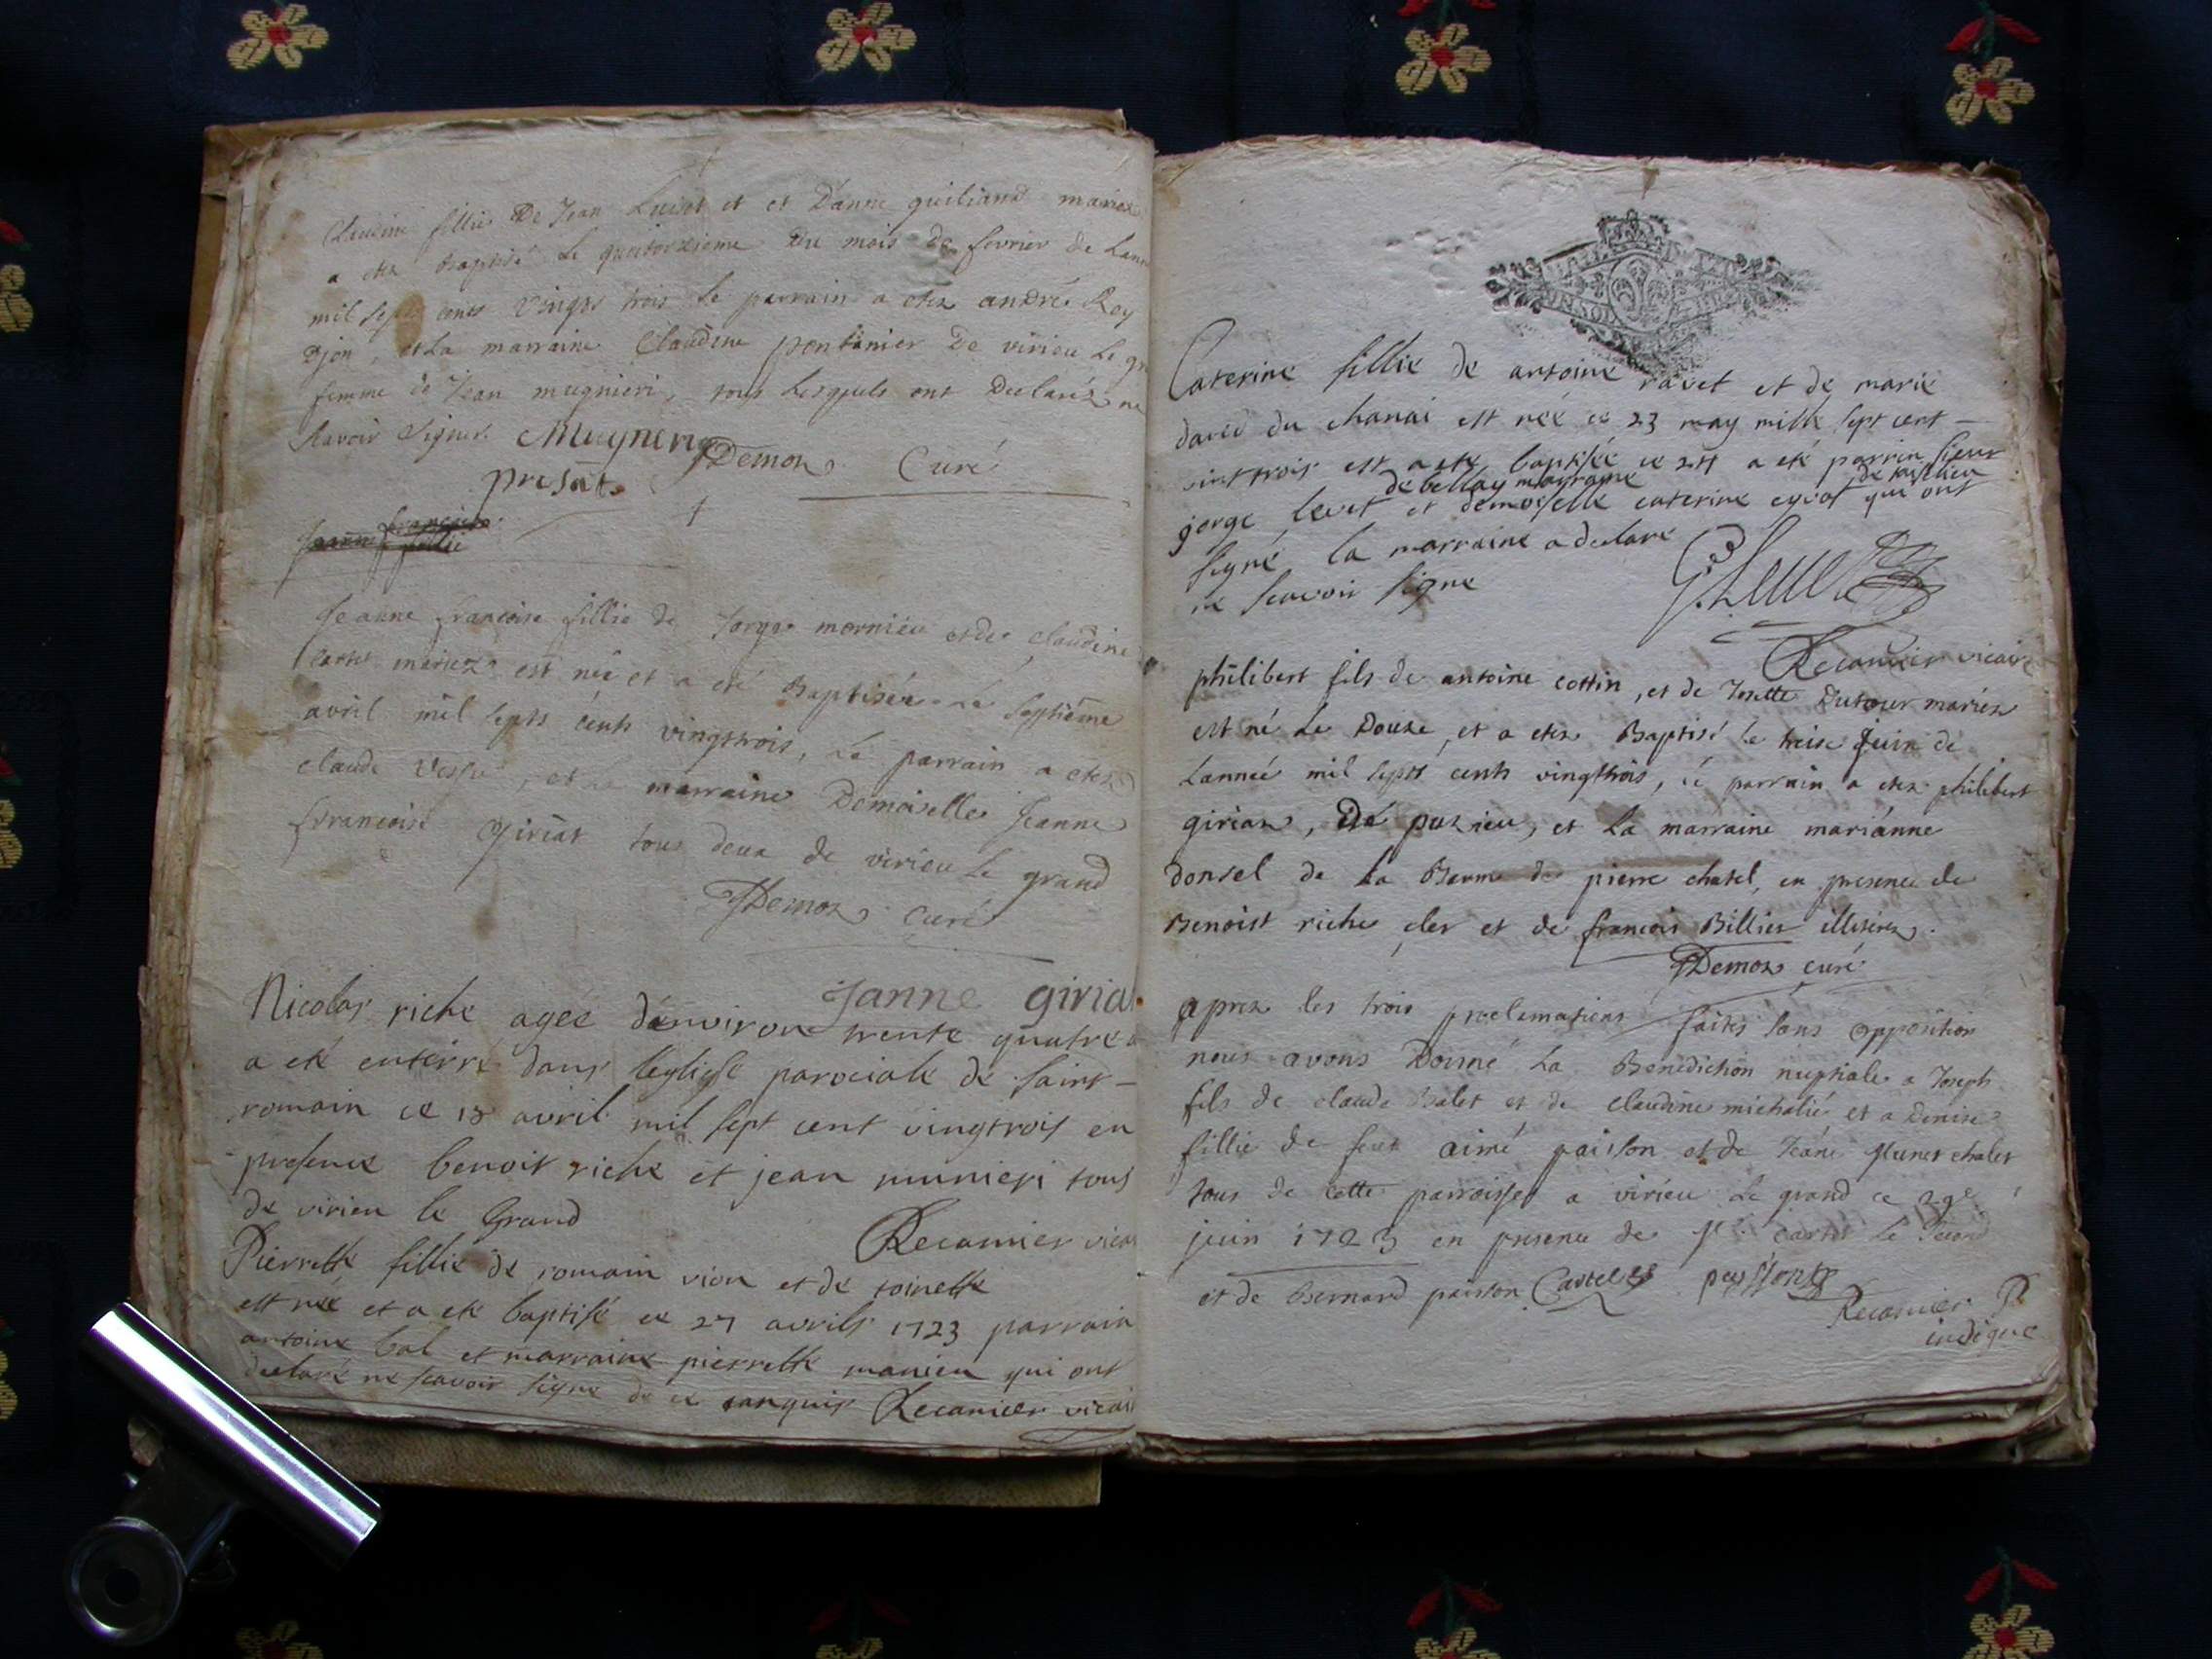 Claudine fillie De Jean Luisot et et D'anne guiliand mariez
a etez Baptisé Le quatorzieme Du mois de fevrier de Lann
mil septs cents vingts trois Le parrain a etez andré Roy
Djon, et La marraine Claudine pontanier De virieu Le gr
femme de Jean mugnieri, tous Lesquels ont Declarés ne
Scavoir Signer. Mugnery Demoz Curé
presat
francoise
Jeanne fillie
Jeanne francoise fillie de Jorge mornieu et de claudine
Cartet mariez est née et a eté Baptisée Le Septième
avril mil septs cents vingttrois, Le parrain a etez
claude , et La marraine Demoiselle Jeanne
francoise Giriat tous deux de virieu Le grand
Demoz curé
Janne giria
Nicolas riche ageé d'environ trente quatre a
a eté enterré dans leglise parociale de saint
romain ce 18 avril mil sept cent vingtrois en
presence benoit riche et jean munieri tous
de virieu le Grand
Recamier vicai
Pierrette fillie de romain vion et de toinette
est neé et a eté baptisé ce 27 avrils 1723 parrain
antoine bal et marraine pierrette manieu qui ont
declaré ne scavoir signe de ce ranquis Recamier vicai
Caterine fillie de antoine ravet et de marie
david du chanai est neé ce 23 may mille sept cent
vint trois est a eté baptisée ce 24 a eté parrin sieur
de bellay marraine de
jorge levet et demoiselle caterine eyvot qui ont
signé la marraine a declare
ne scavoir signe
G. Levet
Recamier vicaire
philibert fils de antoine cottin, et de Josette Dutour mariez
est né Le Douze, et a etez Baptisé le treise Juin de
Lanneé mil septs cents vingttrois, Le parrain a etez philibert
girian, De puzieu, et La marraine marianne
donsel de La Berme de pierre chatel, en presence de
Benoist riche cler et de francois Billier illiterez.
Demoz curé
aprez les trois proclamations faites sans opposition
nous avons Donné La Benediction nuptiale a Joseph
fils de claude Balet et de claudine michalié et a Denise
fillie de feut aimé paison et de Jeane chalet
tous de cette parroisse a virieu Le grand ce 29e
juin 1723 en presence de Sr. cartet le Second
et de Bernard paison Cartet peyssont
Recamier P.
indigne